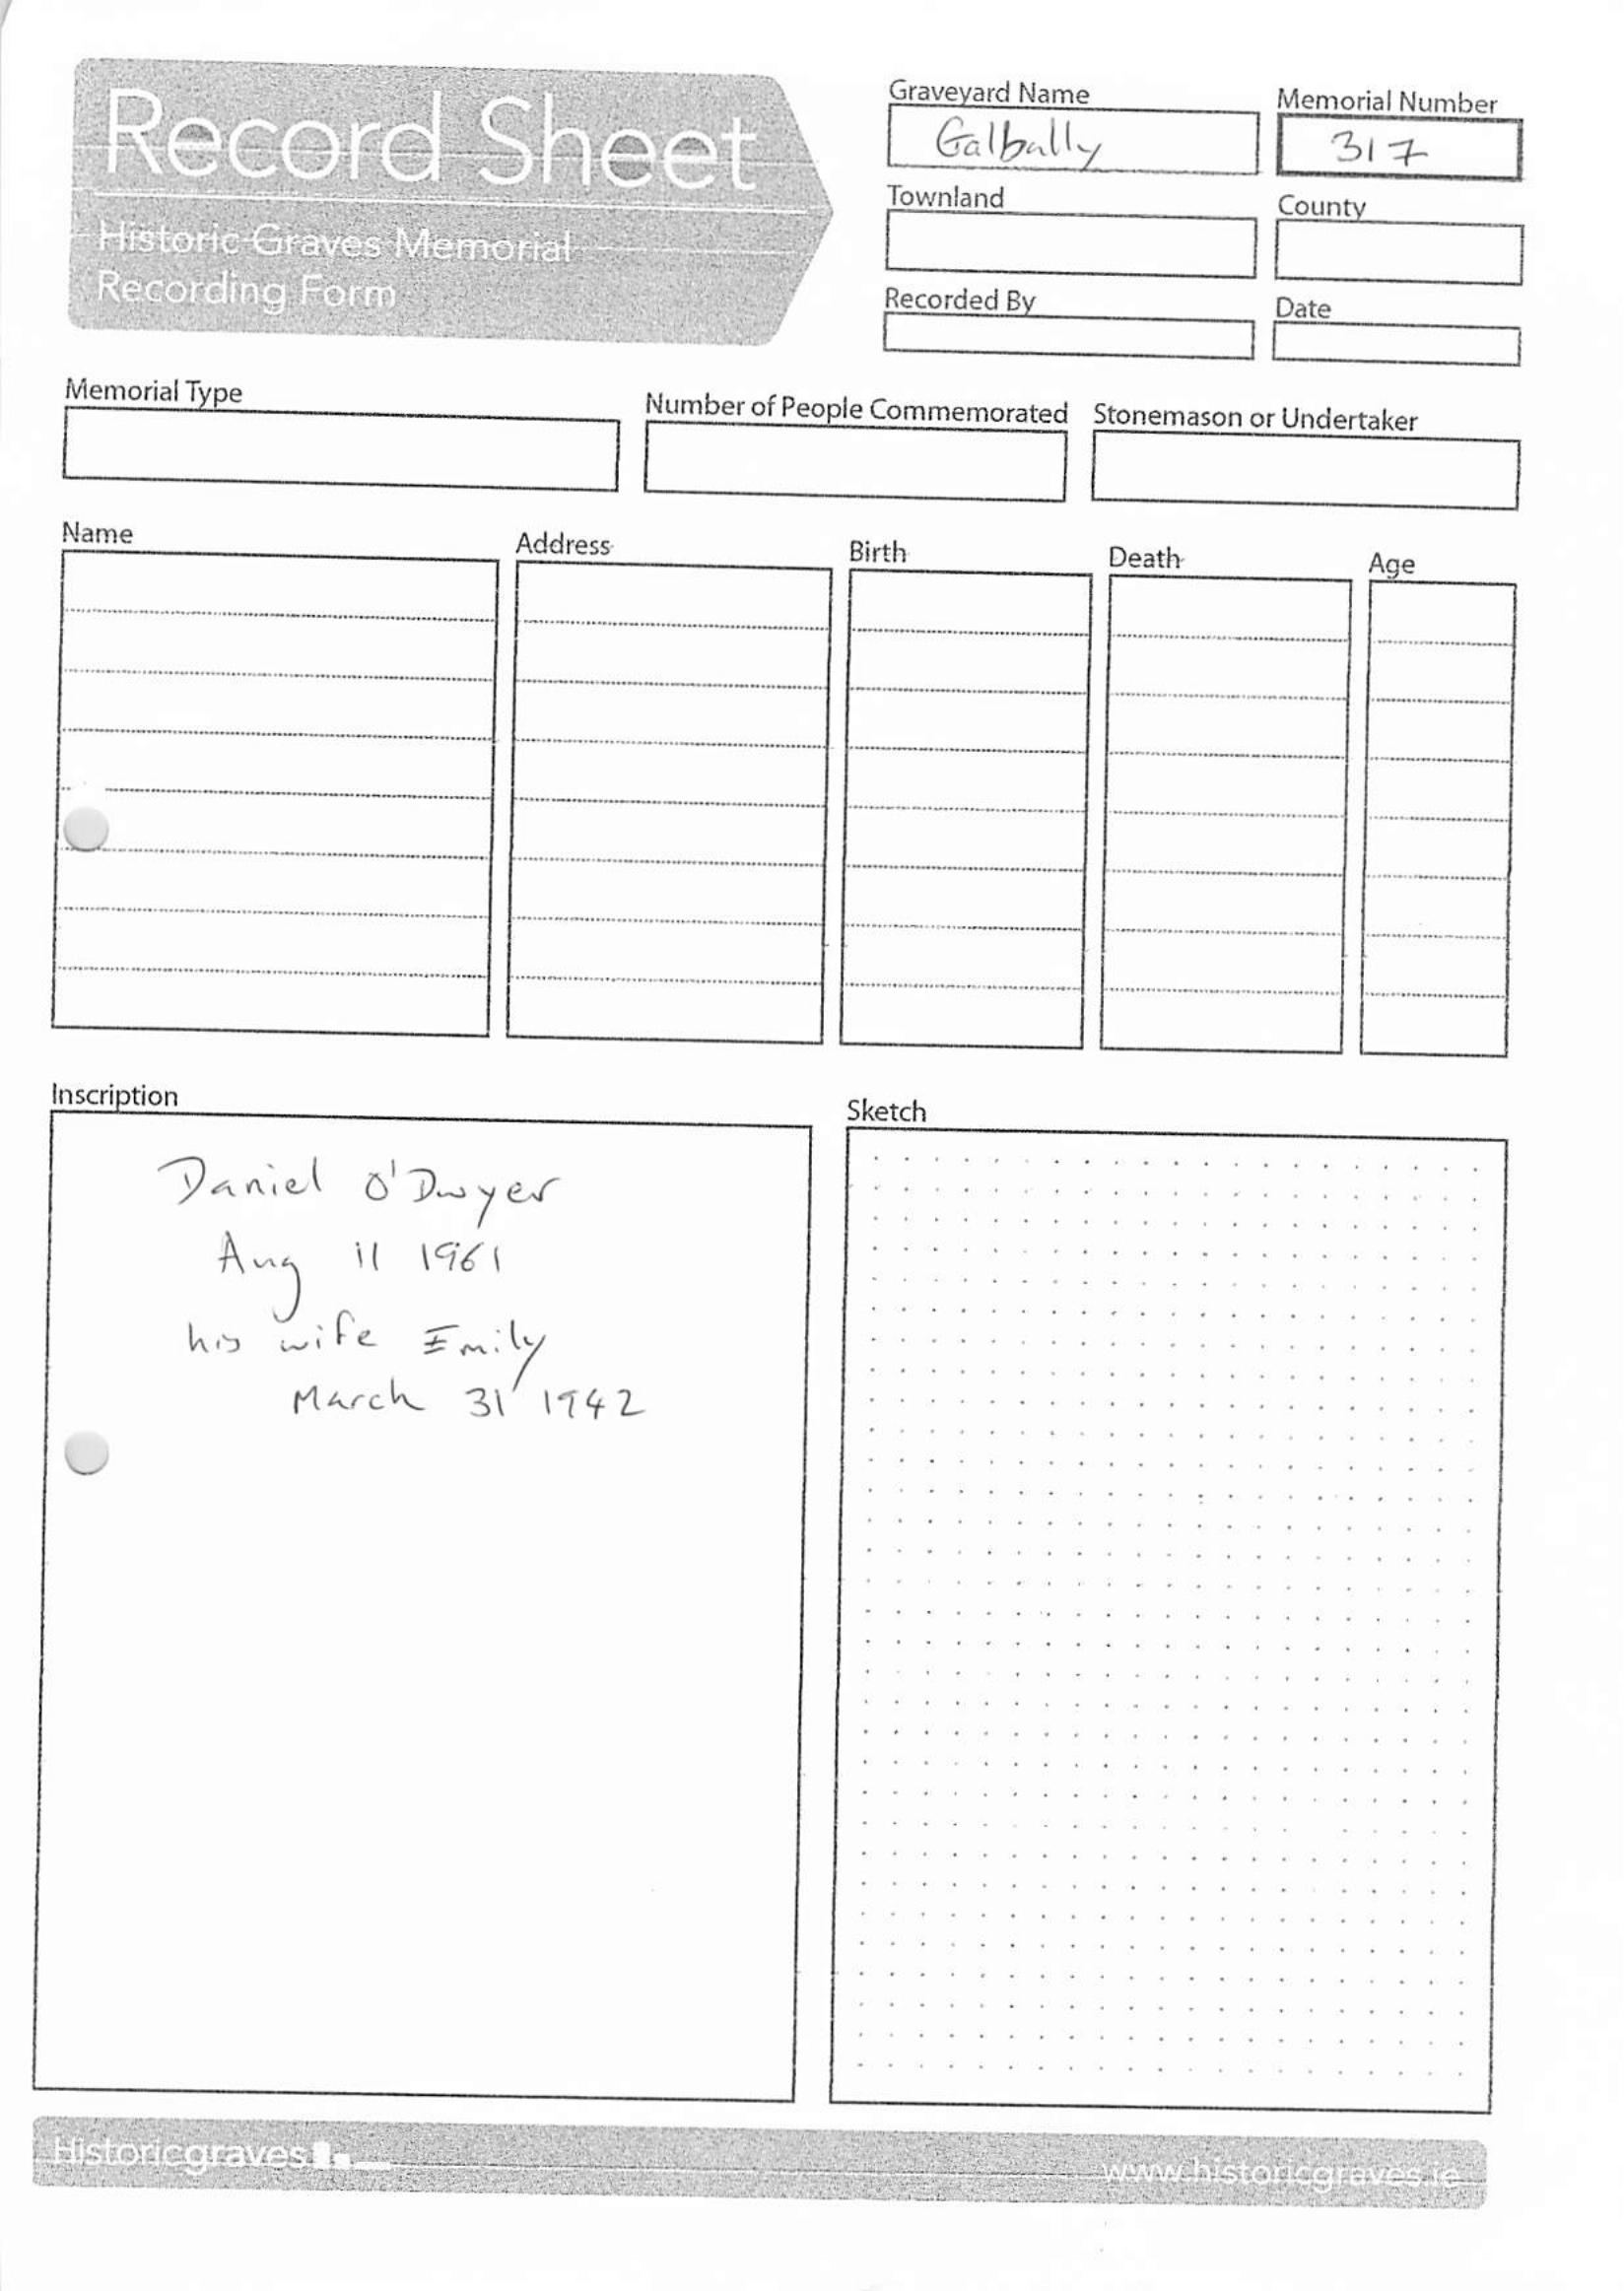 Record Sheet
Historic Graves Memorial
Recording Form
Graveyard Name
Galbally
Memorial Number
317
Townland
County
Recorded By
Date
Memorial Type
Number of People Commemorated
Stonemason or Undertaker
Name
Address
Birth
Death
Age
Inscription
Daniel O'Dwyer
Aug 11 1961
his wife Emily
March 31 1942
Sketch
Historicgraves
www.historicgraves.ie